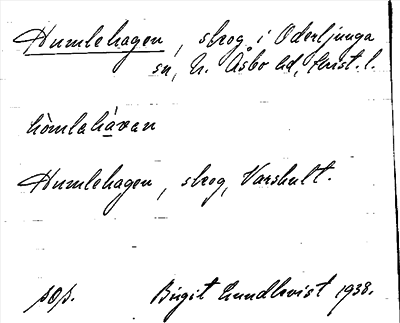 Humlehagen, skog i Oderljunga
sn, N. Åsbo hd, Krist. l.
hòmlahávan
Humlehagen, skog, Varshult.
pop. Birgit Lundkvist 1938.